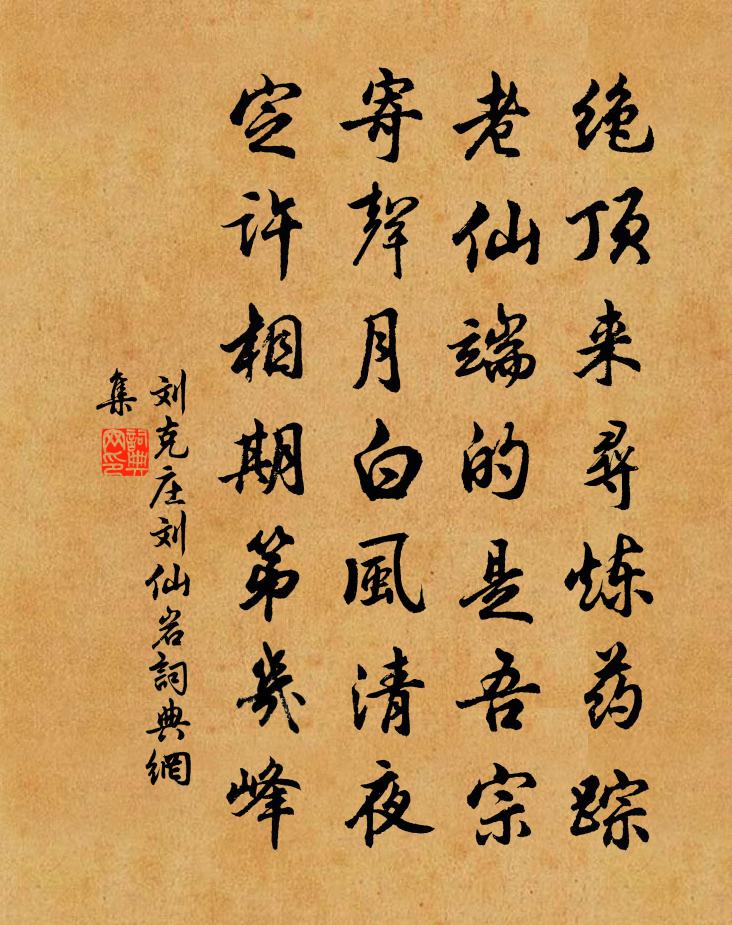 绝顶来尋炼药踪
老仙端的是吾宗
寄聲月白風清夜
定许相期第幾峰
刘克庄刘仙岩詞典網
集
詞典網印